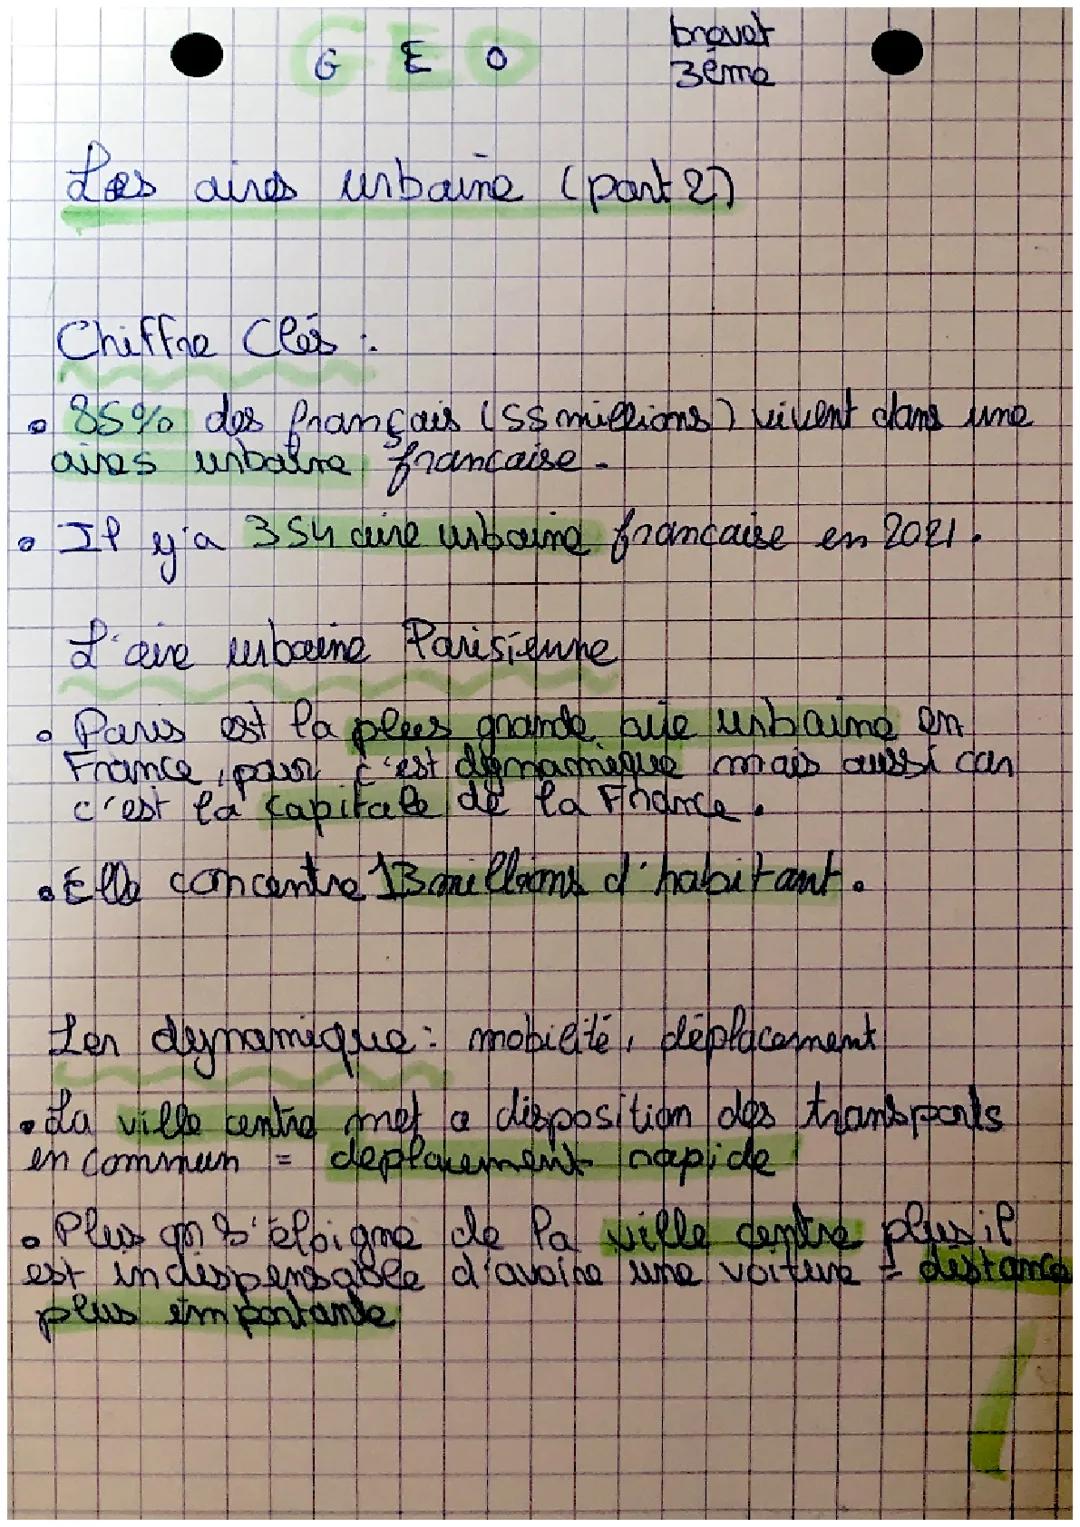 GEO
brevet
3ème
Les aires urbaine (part 2)
Chiffre Clés :
• 85% des français (55 millions) vivent dans une
aires urbaine française.
• Il y'a 354 aire urbaine francaise en 2021.
L'aire urbaine Parisienne
• Paris est la plus grande aire urbaine en
France, pour c'est dynamique mais aussi car
c'est la capitale de la France.
• Elle concentre 13 millions d'habitant.
Les dynamique : mobilité, déplacement
• La ville centre met a disposition des transports
en commun = deplacement rapide
• Plus on s'éloigne de la ville centre plus il
est indispensable d'avoire une voiture = distance
plus importante